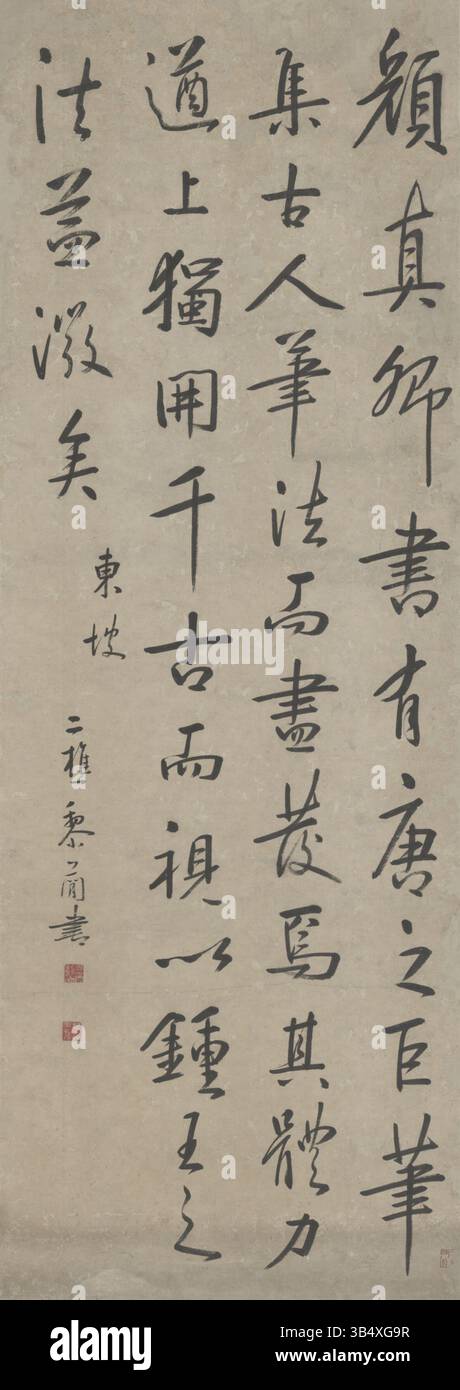 顔真卿書有唐之巨筆
集古人筆法而盡發焉其體力
遒上獨開千古而視以鍾王之
法益澂矣
東坡
二樵黎簡書
alamy
Image ID: 3B4XG9R
www.alamy.com